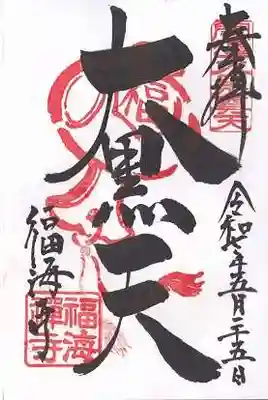 奉拝
大黒天
令和七年五月二十五日
福海寺
福海禅寺
福